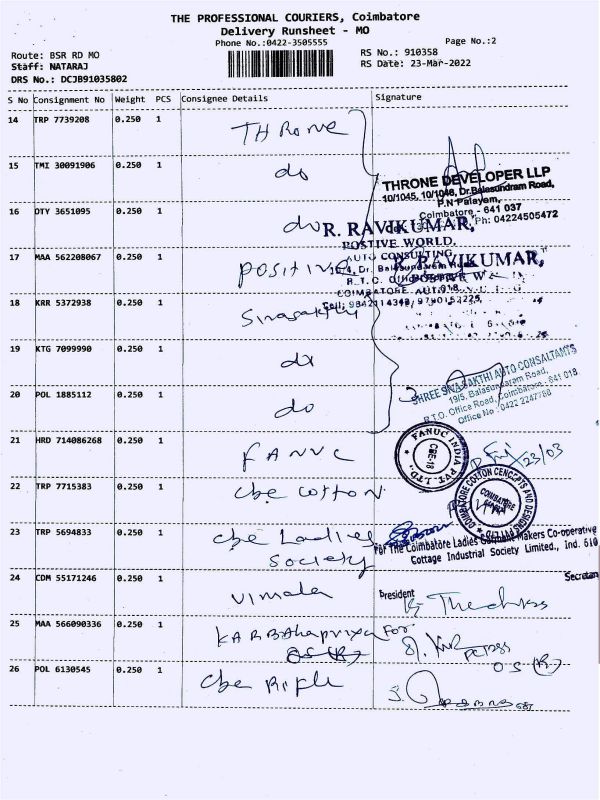 THE PROFESSIONAL COURIERS, Coimbatore
Delivery Runsheet - MO
Phone No.:0422-3505555
Page No.:2
Route: BSR RD MO
RS No.: 910358
Staff: NATARAJ
RS Date: 23-Mar-2022
DRS No.: DCJB91035802
S No Consignment No Weight PCS Consignee Details Signature
14 TRP 7739208 0.250 1 THRONE
15 TMI 30091906 0.250 1 do
THRONE DEVELOPER LLP
10/1045, 10/1046, Dr.Balasundram Road,
P.N Palayam,
16 DTY 3651095 0.250 1 do
Coimbatore - 641 037
Ph: 04224505472
R. RAVIKUMAR,
POSTIVE WORLD,
17 MAA 562208067 0.250 1 POSITIVE
AUTO CONSULTING
R. RAVIKUMAR,
COIMBATORE
18 KRR 5372938 0.250 1 Sivasakthi
19 KTG 7099990 0.250 1 do
SHREE SIVASAKTHI AUTO CONSALTANTS
19/5. Balasundaram Road,
R.T.O. Office Road, Coimbatore - 641 018.
Office No : 0422 2247768
20 POL 1885112 0.250 1 do
21 HRD 714086268 0.250 1 FANUC
FANUC INDIA PVT. LTD.,
CBE-18
23/03
22 TRP 7715383 0.250 1 cbe cotton
COIMBATORE COTTON CENCEPTS AND DESIGNS
COIMBATORE
23 TRP 5694833 0.250 1 cbe Ladies
Society
For The Coimbatore Ladies Garment Makers Co-operative
Cottage Industrial Society Limited., Ind. 610
Secretary
24 CDM 55171246 0.250 1 Vimala
President
25 MAA 566090336 0.250 1 For
OS(R)
OS(R)
26 POL 6130545 0.250 1 Cbe Rifle